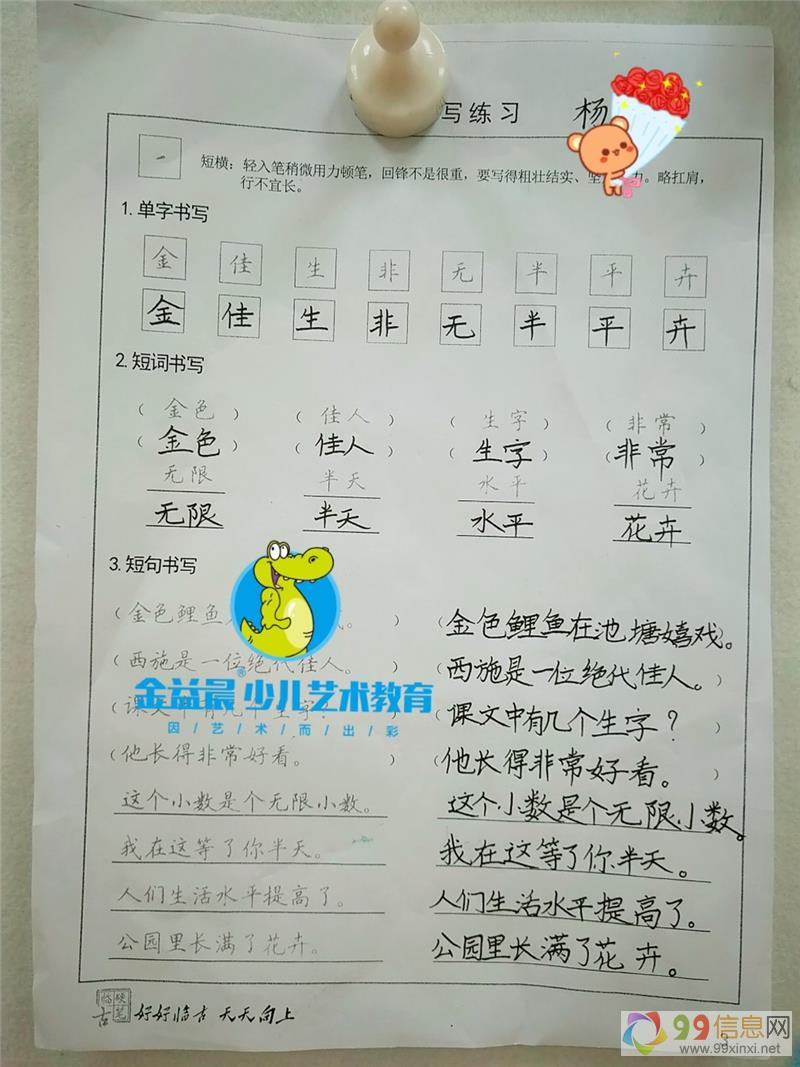 写练习 杨
短横：轻入笔稍微用力顿笔，回锋不是很重，要写得粗壮结实、坚 力。略扛肩，
行不宜长。
1. 单字书写
金 佳 生 非 无 半 平 卉
金 佳 生 非 无 半 平 卉
2. 短词书写
（金色） （佳人） （生字） （非常）
（金色） （佳人） （生字） （非常）
无限 半天 水平 花卉
无限 半天 水平 花卉
3. 短句书写
（金色鲤鱼 ） （金色鲤鱼在池塘嬉戏。
（西施是一位绝代佳人。 （西施是一位绝代佳人。）
金益晨®少儿艺术教育
因/艺/术/而/出/彩
（课文中有几个生字？ ） （课文中有几个生字？）
（他长得非常好看。 ） （他长得非常好看。）
这个小数是个无限小数。 这个小数是个无限小数。
我在这等了你半天。 我在这等了你半天。
人们生活水平提高了。 人们生活水平提高了。
公园里长满了花卉。 公园里长满了花卉。
临古硬笔 好好临古 天天向上
3
99信息网
www.99xinxi.net